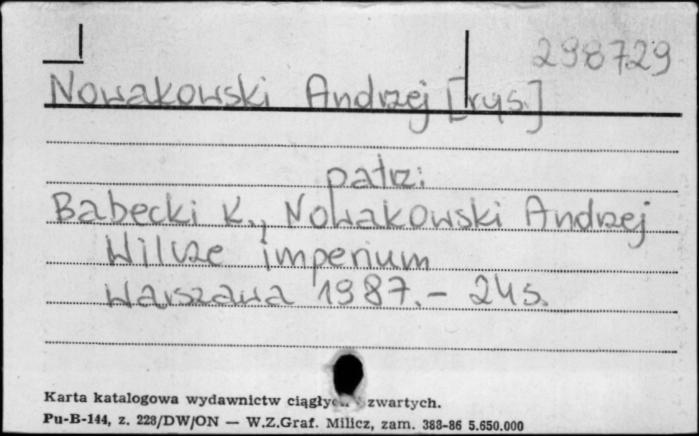 298729
Nowakowski Andrzej [rys.]
patrz:
Babecki K., Nowakowski Andrzej
Wilcze imperium
Warszawa 1987.- 24 s.
Karta katalogowa wydawnictw i zwartych.
Pu-B-144, z. 228/DW/ON — W.Z.Graf. Milicz, zam. 388-86 5.650.000